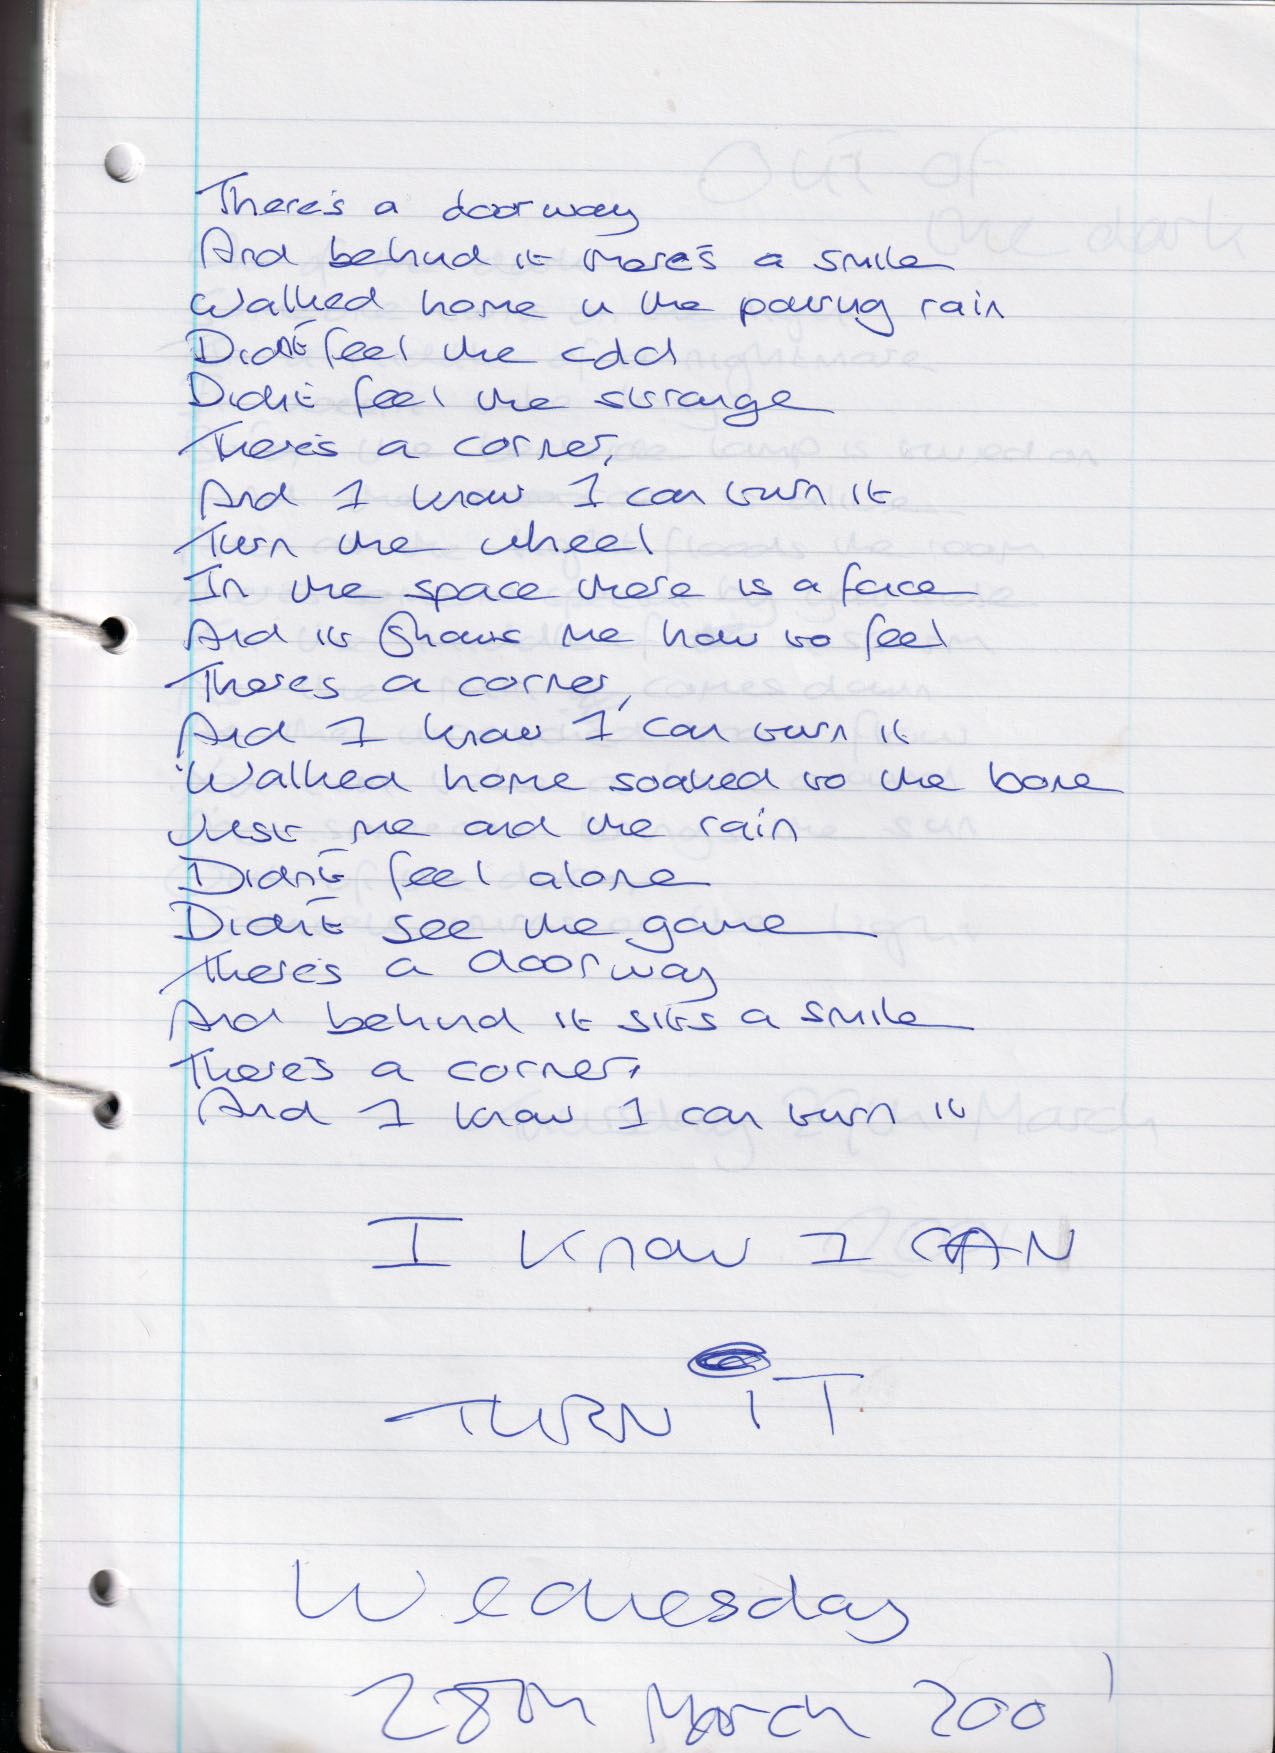 There's a doorway
And behind it there's a smile
Walked home in the pouring rain
Didn't feel the cold
Didn't feel the strange
There's a corner,
And I know I can turn it
Turn the wheel
In the space there is a face
And it shows me how to feel
There's a corner,
And I know I can turn it
Walked home soaked to the bone
Just me and the rain
Didn't feel alone
Didn't see the game
There's a doorway
And behind it sits a smile
There's a corner,
And I know I can turn it
I know I CAN
TURN IT
Wednesday
28th March 2001